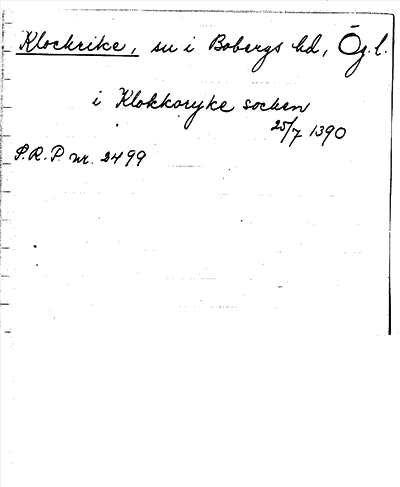 Klockrike, sn i Bobergs hd, Ög.l.
i Klokkoryke socken
25/7 1390
S.R.P. nr. 2499